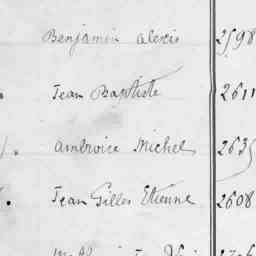 Benjamin alexis 2598
Jean Baptiste 2611
ambroise Michel 2635
Jean Gilles Etienne 2608